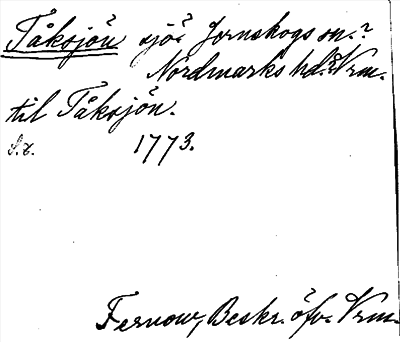 Tåksjön sjö? Jernskogs sn.?
Nordmarks hd.? Vrm.
til Tåksjön.
S. 2. 1773.
Fernow, Beskr. öfv. Vrm.